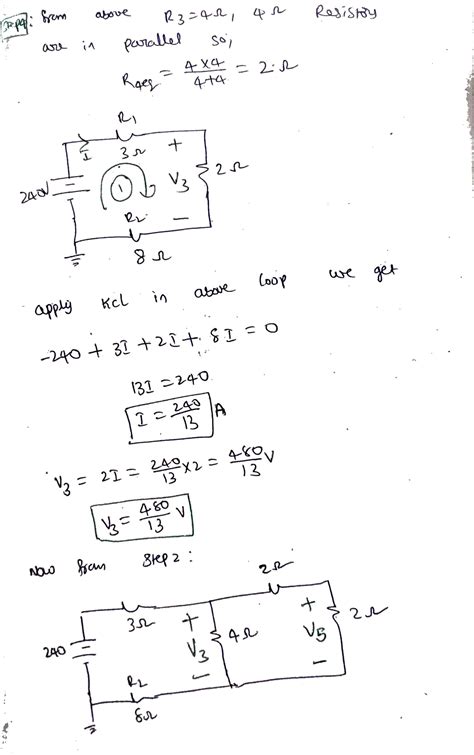 Step4: from above R3=4Ω, 4Ω Resistors
are in parallel so,
R4eq = 4×4/4+4 = 2Ω
R1
I 3Ω +
240V 1 V3 2Ω
R2 −
8Ω
apply KCL in above loop we get
-240 + 3I + 2I + 8I = 0
13I = 240
I = 240/13 A
V3 = 2I = 240/13 × 2 = 480/13 V
V3 = 480/13 V
Now from Step2:
2Ω
3Ω + 4Ω + 2Ω
240 V3 V5
R2 − −
8Ω